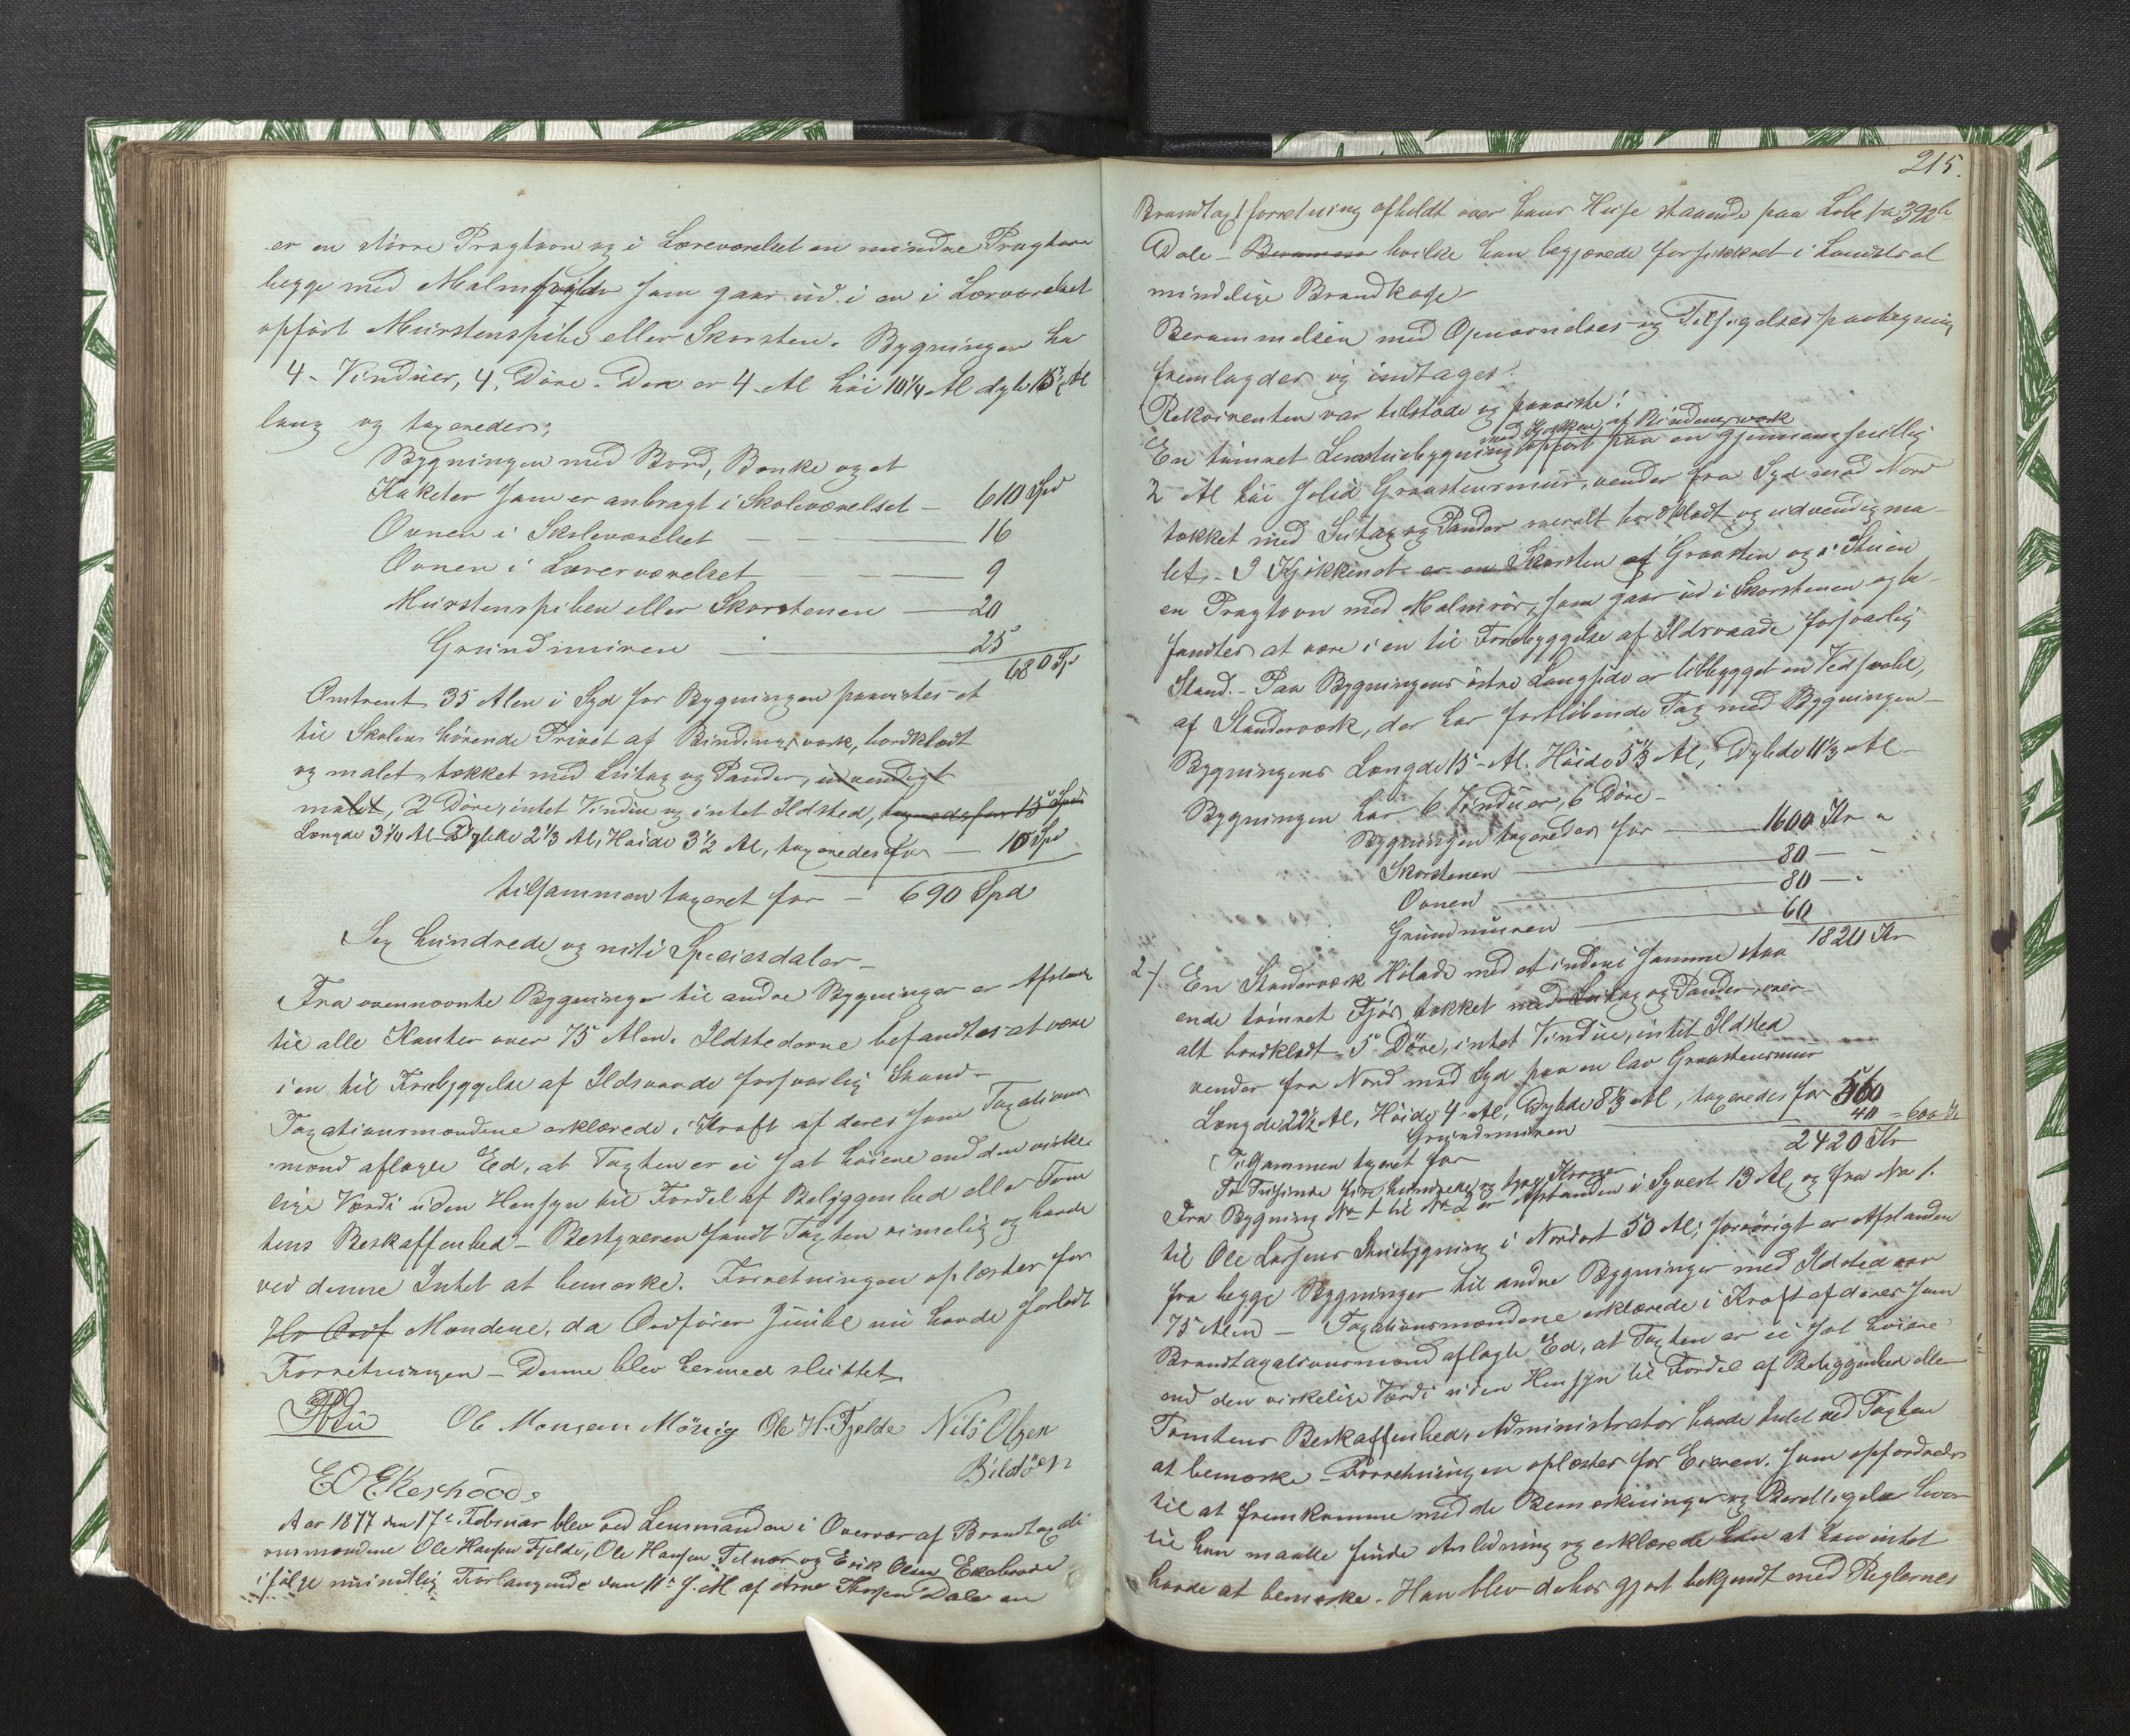 er en större Pragtovn og i Læreværelset en mindre Pragtovn
begge med Malm som gaar ud i en i Lærværelset
opfört Murstenspibe eller Skorsten. Bygningen har
4 Vinduer, 4 Döre. Den er 4 Al höi 10 1/4 Al dyb 15 1/2 Al
lang og taxeredes:
Bygningen med Bord, Bænke og et
Katheter som er anbragt i Skoleværelset — 610 Spd
Ovnen i Skoleværelset — 16
Ovnen i Lærerværelset — 9
Murstenspiben eller Skorstenen — 20
Grundmuren — 25
680 Sp
Omtrent 35 Alen i Syd for Bygningen paavistes et
til Skolen hörende Privet af Bindingsværk, bordklædt
og malet, tækket med Lutag og Pander, udvendigt
malet, 2 Döre, intet Vindue og intet Ildsted, taxeredes for 15 Spd
Længde 3 1/4 Al Dybde 2 1/3 Al, Höide 3 1/2 Al, taxeredes for — 10 Spd
tilsammen taxeret for — 690 Spd
Sex hundrede og niti Speciesdaler —
Fra ovennævnte Bygninger til andre Bygninger er Afstand
til alle Kanter over 75 Alen. Ildstederne befandtes at være
i en til Forebyggelse af Ildsvaade forsvarlig Stand —
Taxationsmændene erklærede, i Kraft af deres som Taxations
mænd aflagte Ed, at Taxten er ei sat höiere end den virke
lige Værdi uden Hensyn til Fordel af Beliggenhed eller Tom
tens Beskaffenhed — Bestyreren fandt Taxten rimelig og havde
ved denne Intet at bemærke. Forretningen oplæstes for
Hr Ordf Mændene, da Ordförer nu havde forladt
Forretningen — Denne blev hermed sluttet
Ole Monsen Mövig Ole H. Fjelde Nils Olsen
Bildöen
E O Ekerhovd
Aar 1877 den 17de Februar blev ved Lensmanden i Overvær af Brandtaxati
onsmændene Ole Hansen Fjelde, Ole Hansen Telnæs og Erik Olsen Ekerhovd
ifölge mundtlig Forlangende den 11te d. M. af Arne Thorsen Dale en
215.
Brandtaxtforretning afholdt over hans Huse staaende paa Löbe No 392b
Dale — hvilke han begjærede forsikkret i Landets al
mindelige Brandkasse
Berammelsen med Opnævnelses og Tilsigelsespaategning
fremlagdes og indtages:
Rekvirenten var tilstæde og paaviste:
med Kjökken af Bindingsværk
En tömret Lemstuebygning opfört paa en gjennemsnitlig
2 Al höi solid Graastensmuur, vender fra Syd mod Nord
tækket med Lutag og Pander overalt bordklædt og udvendig ma-
let. — I Kjökkenet er en Skorsten af Graasten og i Stuen
en Pragtovn med Malmrör, som gaar ud i Skorstenen og be-
fandtes at være i en til Forebyggelse af Ildsvaade forsvarlig
Stand. — Paa Bygningens östre Langside er tilbygget en Vedsvale,
af Standerværk, der har fortlöbende Tag med Bygningen —
Bygningens Længde 15 Al. Höide 5 1/3 Al, Dybde 11 1/3 Al —
Bygningen har 6 Vinduer, 6 Döre —
Bygningen taxeredes for — 1600 Kr
Skorstenen — 80 —
Ovnen — 80 —
Grundmuren — 60
1820 Kr
2-/ En Standerværk Hölade med et indeni samme staa
ende tömret Fjös, tækket med Lutag og Pander, over-
alt bordklædt 5 Döre, intet Vindue, intet Ildsted
vender fra Nord mod Syd paa en lav Graastensmuur
Længde 22 1/2 Al, Höide 4 Al, Dybde 8 1/3 Al, taxeredes for 560
Grundmuren 40 = 600 Kr
Tilsammen taxeret for 2420 Kr
To Tusinde fire hundrede og tyve Kroner
Fra Bygning No 1 til No 2 er Afstanden i Sydvest 13 Al, og fra No 1.
til Ole Larsens Stuebygning i Nordost 50 Al; forövrigt er Afstanden
fra begge Bygninger til andre Bygninger med Ildsted over
75 Alen — Taxationsmændene erklærede i Kraft af deres som
Brandtaxationsmænd aflagte Ed, at Taxten er ei sat höiere
end den virkelige Værdi uden Hensyn til Fordel af Beliggenhed eller
Tomtens Beskaffenhed. Administrator havde Intet ved Taxten
at bemærke — Forretningen oplæstes for Eieren, som opfordredes
til at fremkomme med de Bemærkninger og Berettigelser hvor
til han maatte finde Anledning og erklærede han at han intet
havde at bemærke. Han blev derhos gjort bekjendt med Reglernes